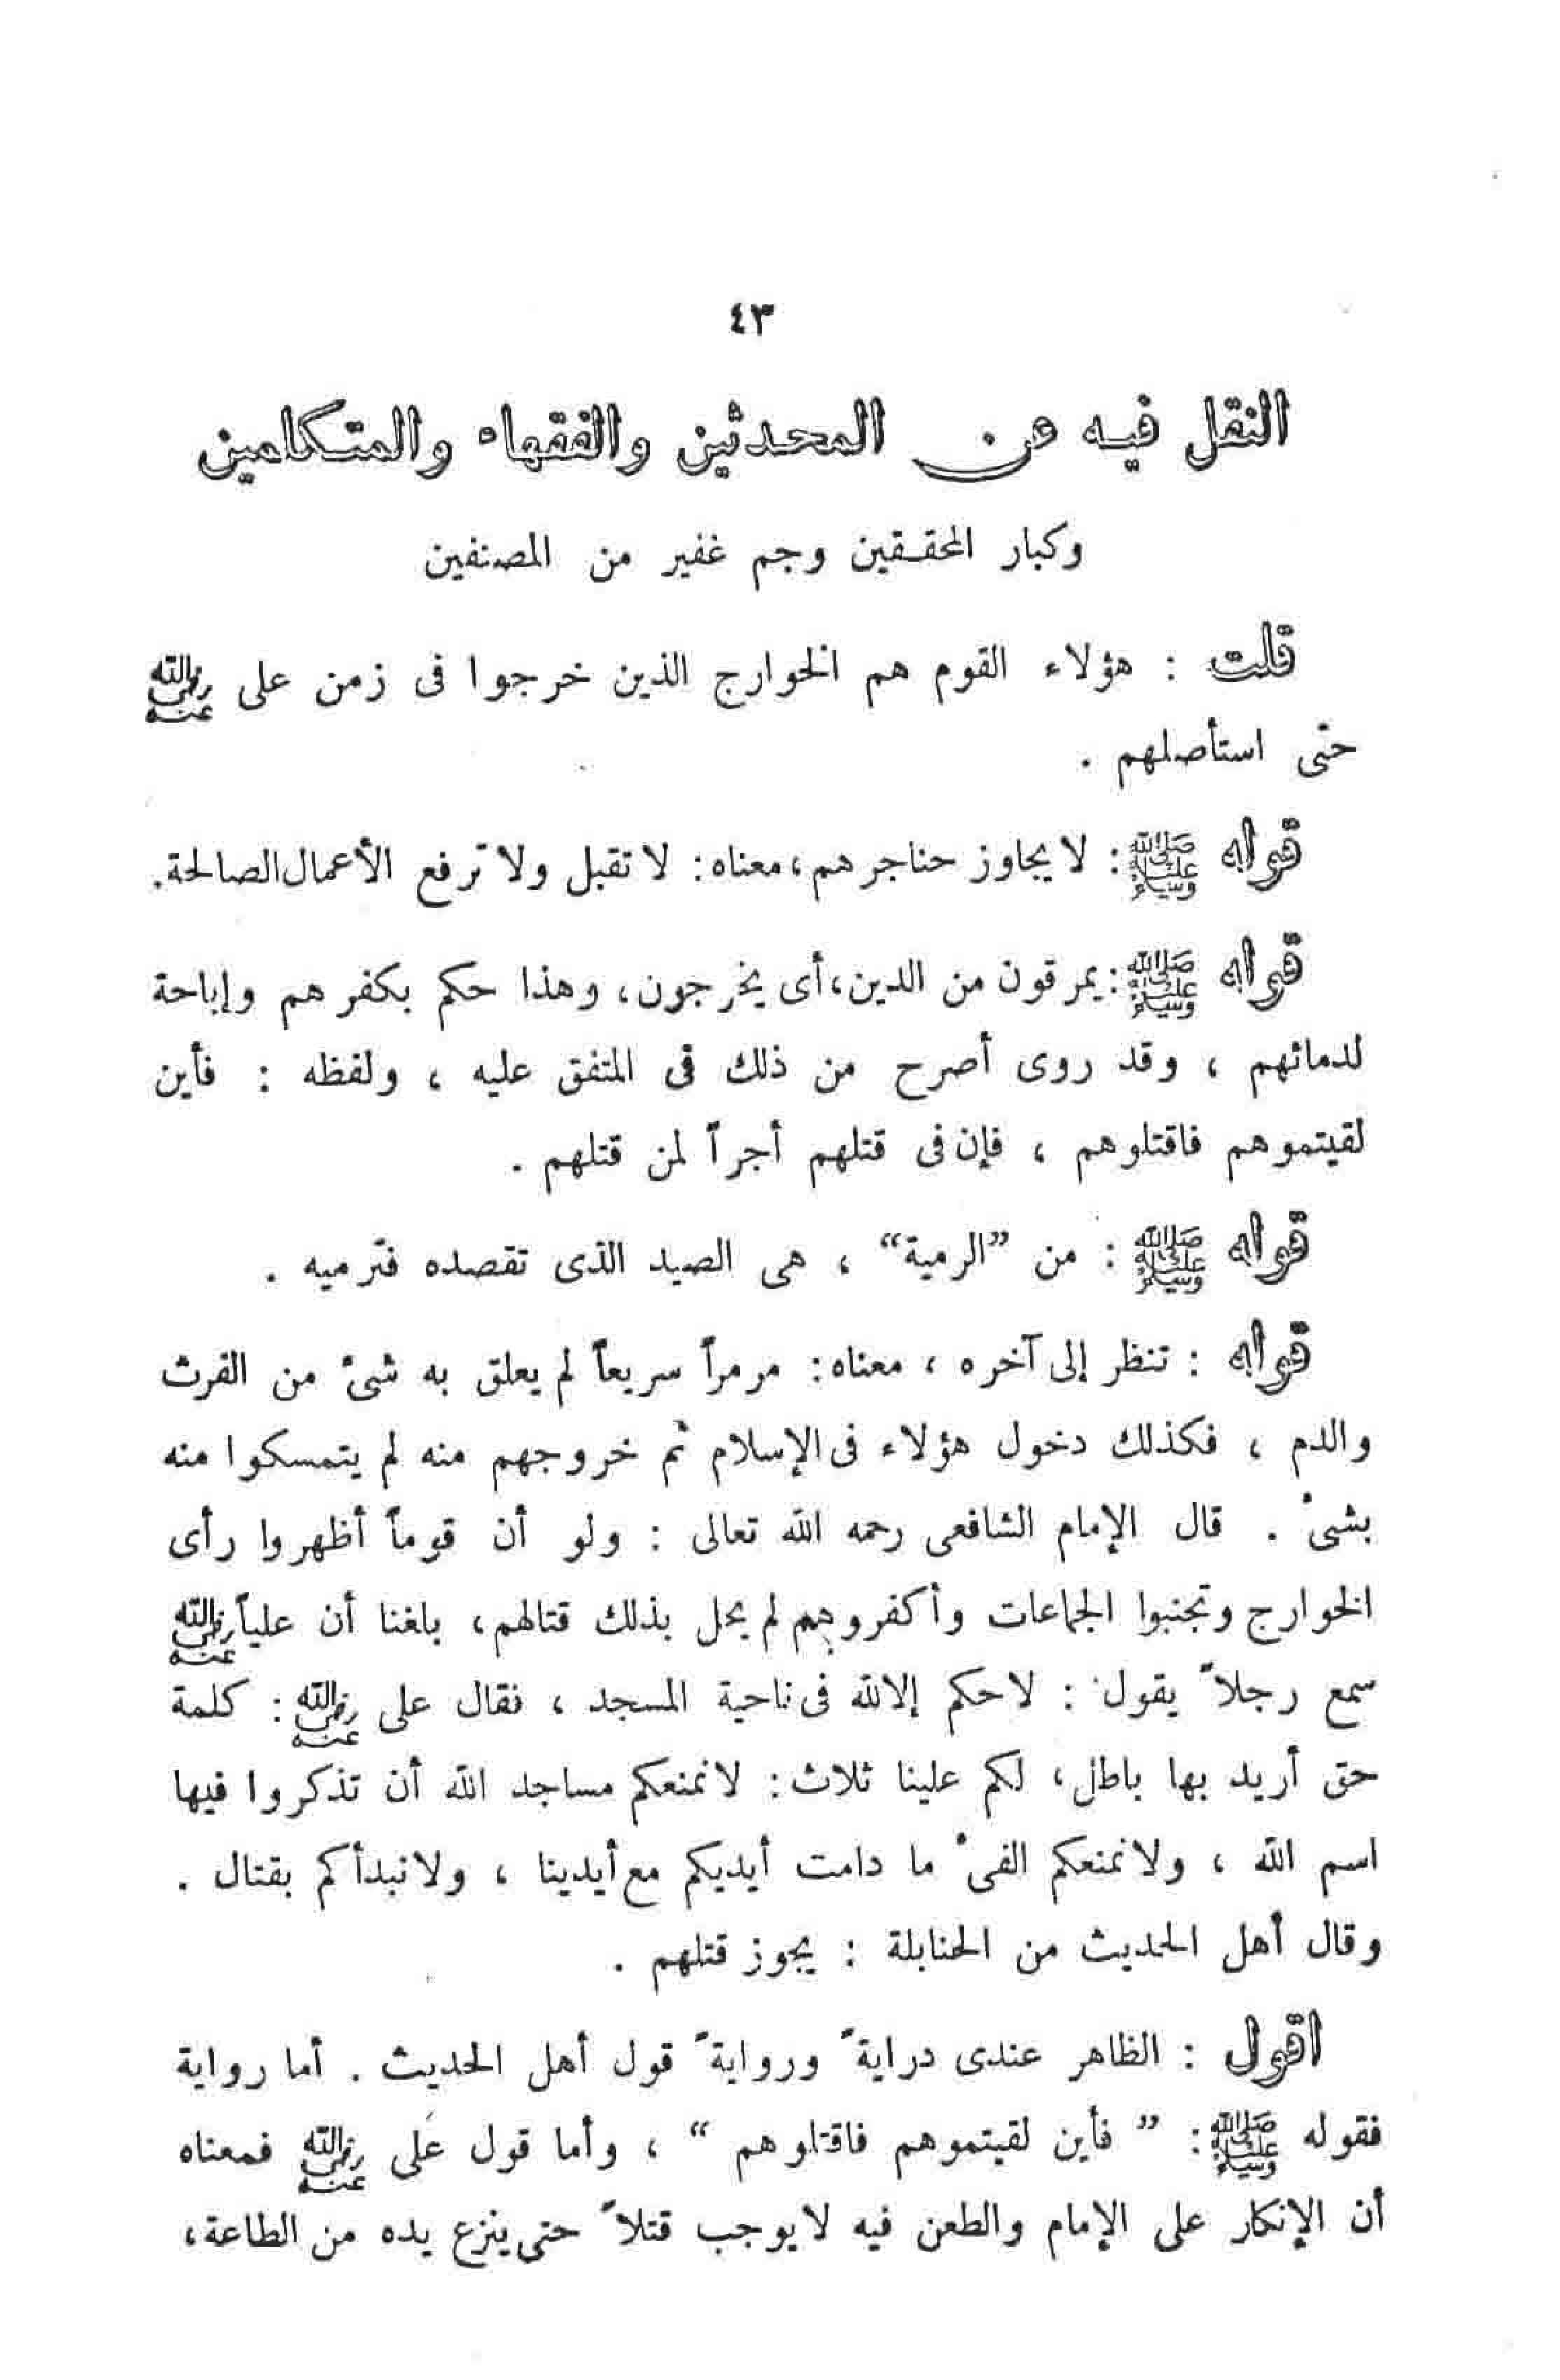 ٤٣
النقل فيه عن المحدثين والفقهاء والمتكلمين
وكبار المحققين وجم غفير من المصنفين
قلت : هؤلاء القوم هم الخوارج الذين خرجوا فى زمن على رضي الله عنه
حتى استأصلهم .
قوله ﷺ : لا يجاوز حناجرهم ، معناه : لا تقبل ولا ترفع الأعمال الصالحة .
قوله ﷺ : يمرقون من الدين ، أى يخرجون ، وهذا حكم بكفرهم وإباحة
لدمائهم ، وقد روى أصرح من ذلك فى المتفق عليه ، ولفظه : فأين
لقيتموهم فاقتلوهم ، فإن فى قتلهم أجراً لمن قتلهم .
قوله ﷺ : من ”الرمية“ ، هى الصيد الذى تقصده فترميه .
قوله : تنظر إلى آخره ، معناه : مر مراً سريعاً لم يعلق به شئ من الفرث
والدم ، فكذلك دخول هؤلاء فى الإسلام ثم خروجهم منه لم يتمسكوا منه
بشئ . قال الإمام الشافعى رحمه الله تعالى : ولو أن قوماً أظهروا رأى
الخوارج وتجنبوا الجماعات وأكفروهم لم يحل بذلك قتالهم ، بلغنا أن علياً رضي الله عنه
سمع رجلاً يقول : لا حكم إلا لله فى ناحية المسجد ، فقال على رضي الله عنه : كلمة
حق أريد بها باطل ، لكم علينا ثلاث : لا نمنعكم مساجد الله أن تذكروا فيها
اسم الله ، ولا نمنعكم الفئ ما دامت أيديكم مع أيدينا ، ولا نبدأكم بقتال .
وقال أهل الحديث من الحنابلة : يجوز قتلهم .
اقول : الظاهر عندى دراية ً ورواية ً قول أهل الحديث . أما رواية
فقوله ﷺ : ” فأين لقيتموهم فاقتلوهم “ ، وأما قول على رضي الله عنه فمعناه
أن الإنكار على الإمام والطعن فيه لا يوجب قتلاً حتى ينزع يده من الطاعة ،